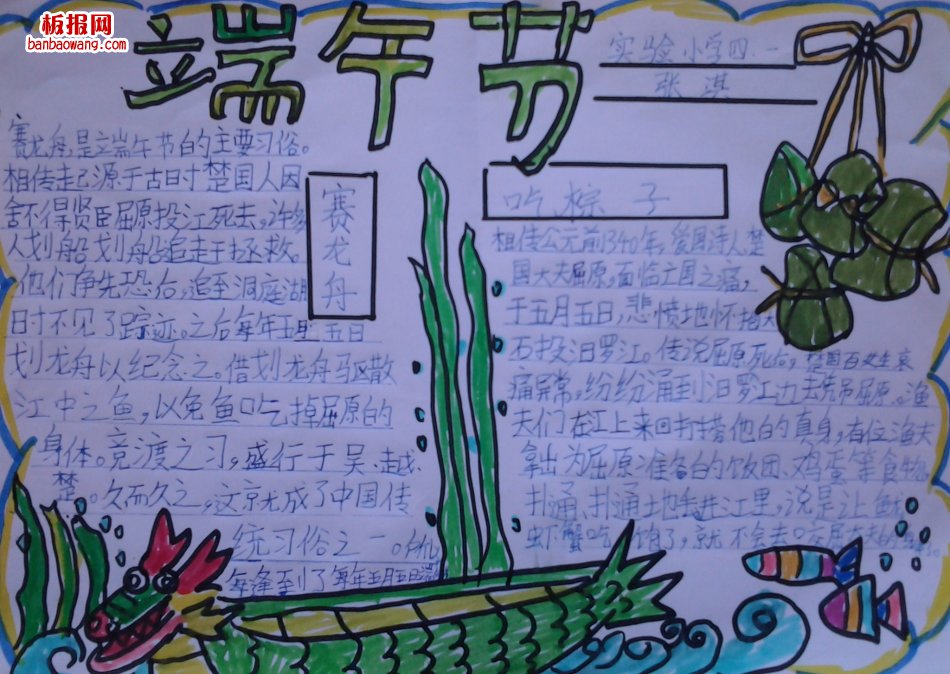 板报网
banbaowang.com
端午节
实验小学四.一
张淇
赛龙舟,是端午节的主要习俗。
相传起源于古时楚国人因
舍不得贤臣屈原投江死去,许多
人划船划船追赶拯救。
他们争先恐后,追至洞庭湖
时不见了踪迹。之后每年五月五日
划龙舟以纪念之。借划龙舟驱散
江中之鱼,以免鱼吃掉屈原的
身体。竞渡之习,盛行于吴、越、
楚。久而久之,这就成了中国传
统习俗之一。
每逢到了每年五月五日
赛龙舟
吃粽子
相传公元前340年,爱国诗人楚
国大夫屈原,面临亡国之痛,
于五月五日,悲愤地怀抱大
石投汨罗江。传说屈原死后,楚国百姓哀
痛异常,纷纷涌到汨罗江边去凭吊屈原。渔
夫们在江上来回打捞他的真身,有位渔夫
拿出为屈原准备的饭团、鸡蛋等食物,
扑通、扑通地丢进江里,说是让鱼
虾蟹吃饱了,就不会去